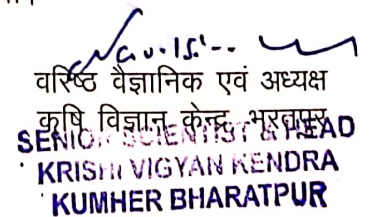 वरिष्ठ वैज्ञानिक एवं अध्यक्ष
कृषि विज्ञान केन्द्र भरतपुर
SENIOR SCIENTIST & HEAD
KRISHI VIGYAN KENDRA
KUMHER BHARATPUR